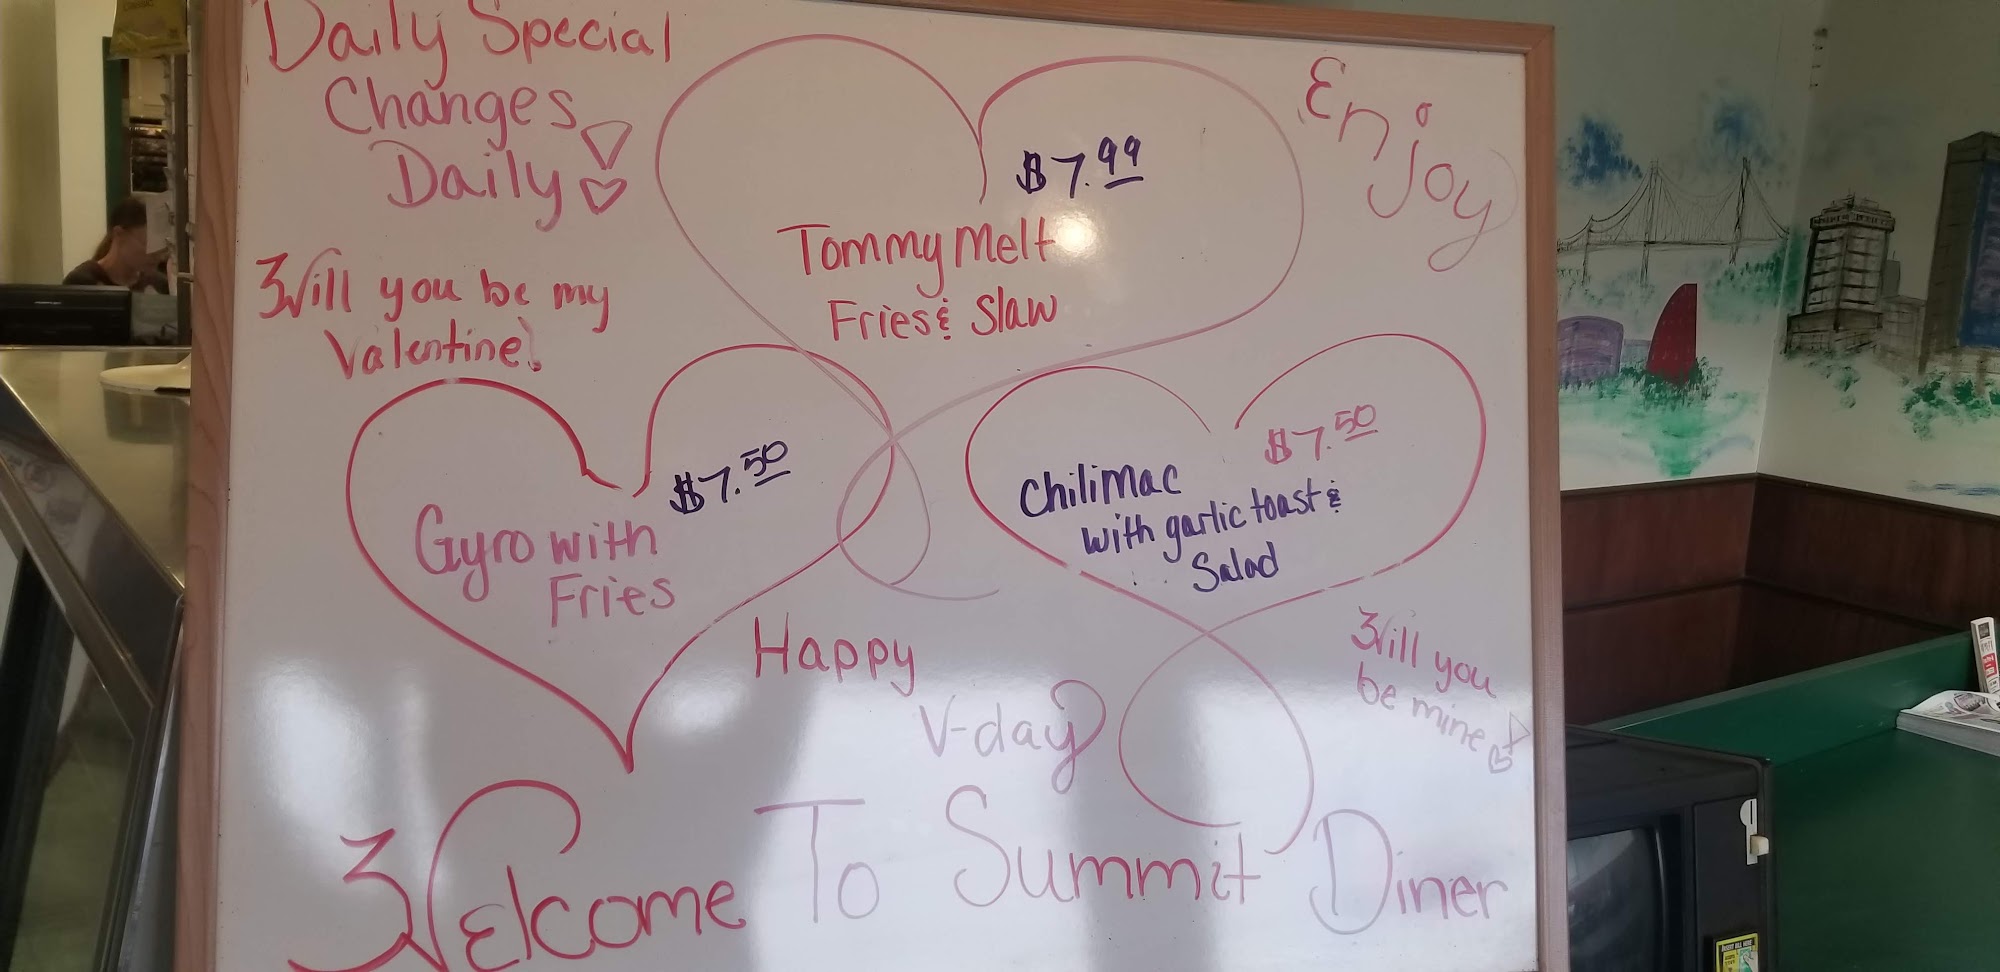 Daily Special
Changes
Daily!
Enjoy
$7.99
Tommy Melt
Fries & Slaw
Will you be my
Valentine!
$7.50
Gyro with
Fries
$7.50
Chilimac
with garlic toast &
Salad
Happy
V-day
Will you
be mine!
Welcome To Summit Diner
INSERT BILL HERE